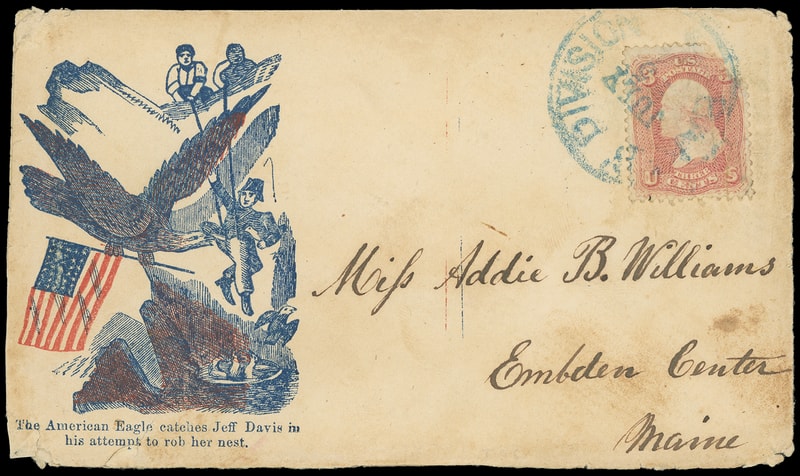 The American Eagle catches Jeff Davis in
his attempt to rob her nest.
DIVISION
U.S.
POSTAGE
U CENTS S
Miss Addie B. Williams
Embden Center
Maine